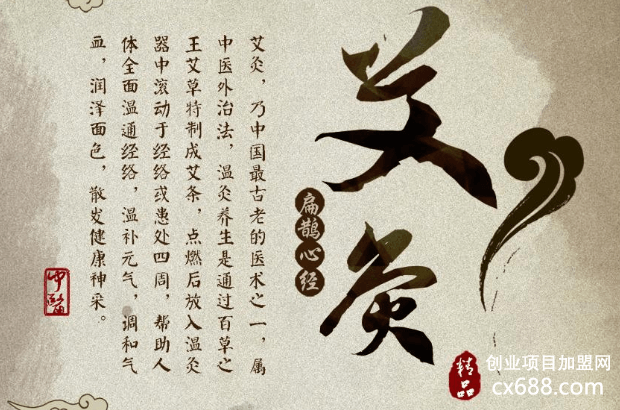 艾灸
扁鹊心经
艾灸，乃中国最古老的医术之一，属
中医外治法，温灸养生是通过百草之
王艾草特制成艾条，点燃后放入温灸
器中滚动于经络或患处四周，帮助人
体全面温通经络，温补元气，调和气
血，润泽面色，散发健康神采。
中医
精品
创业项目加盟网
cx688.com